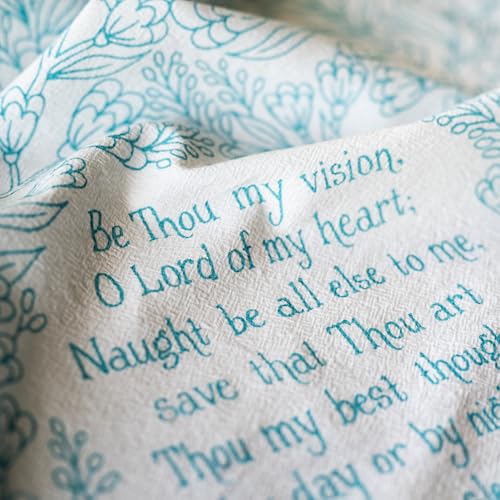 Be Thou my vision,
O Lord of my heart;
Naught be all else to me,
save that Thou art
Thou my best thought
day or by